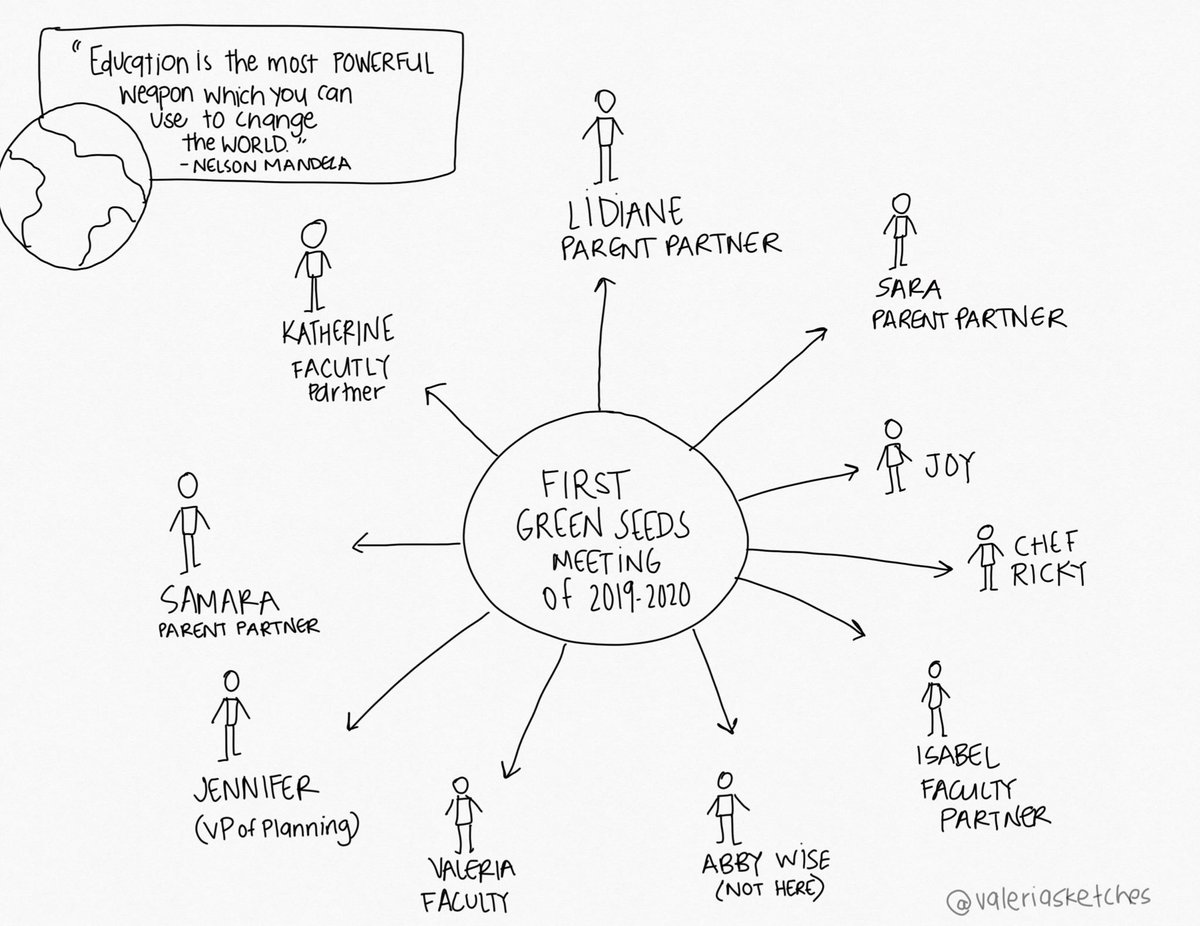 "Education is the most POWERFUL
weapon which you can
use to change
the WORLD."
- NELSON MANDELA
LIDIANE
PARENT PARTNER
SARA
PARENT PARTNER
KATHERINE
FACUTLY
partner
JOY
CHEF
RICKY
FIRST
GREEN SEEDS
MEETING
of 2019-2020
SAMARA
PARENT PARTNER
ISABEL
FACULTY
PARTNER
JENNIFER
(VP of Planning)
VALERIA
FACULTY
ABBY WISE
(NOT HERE)
@valeriasketches